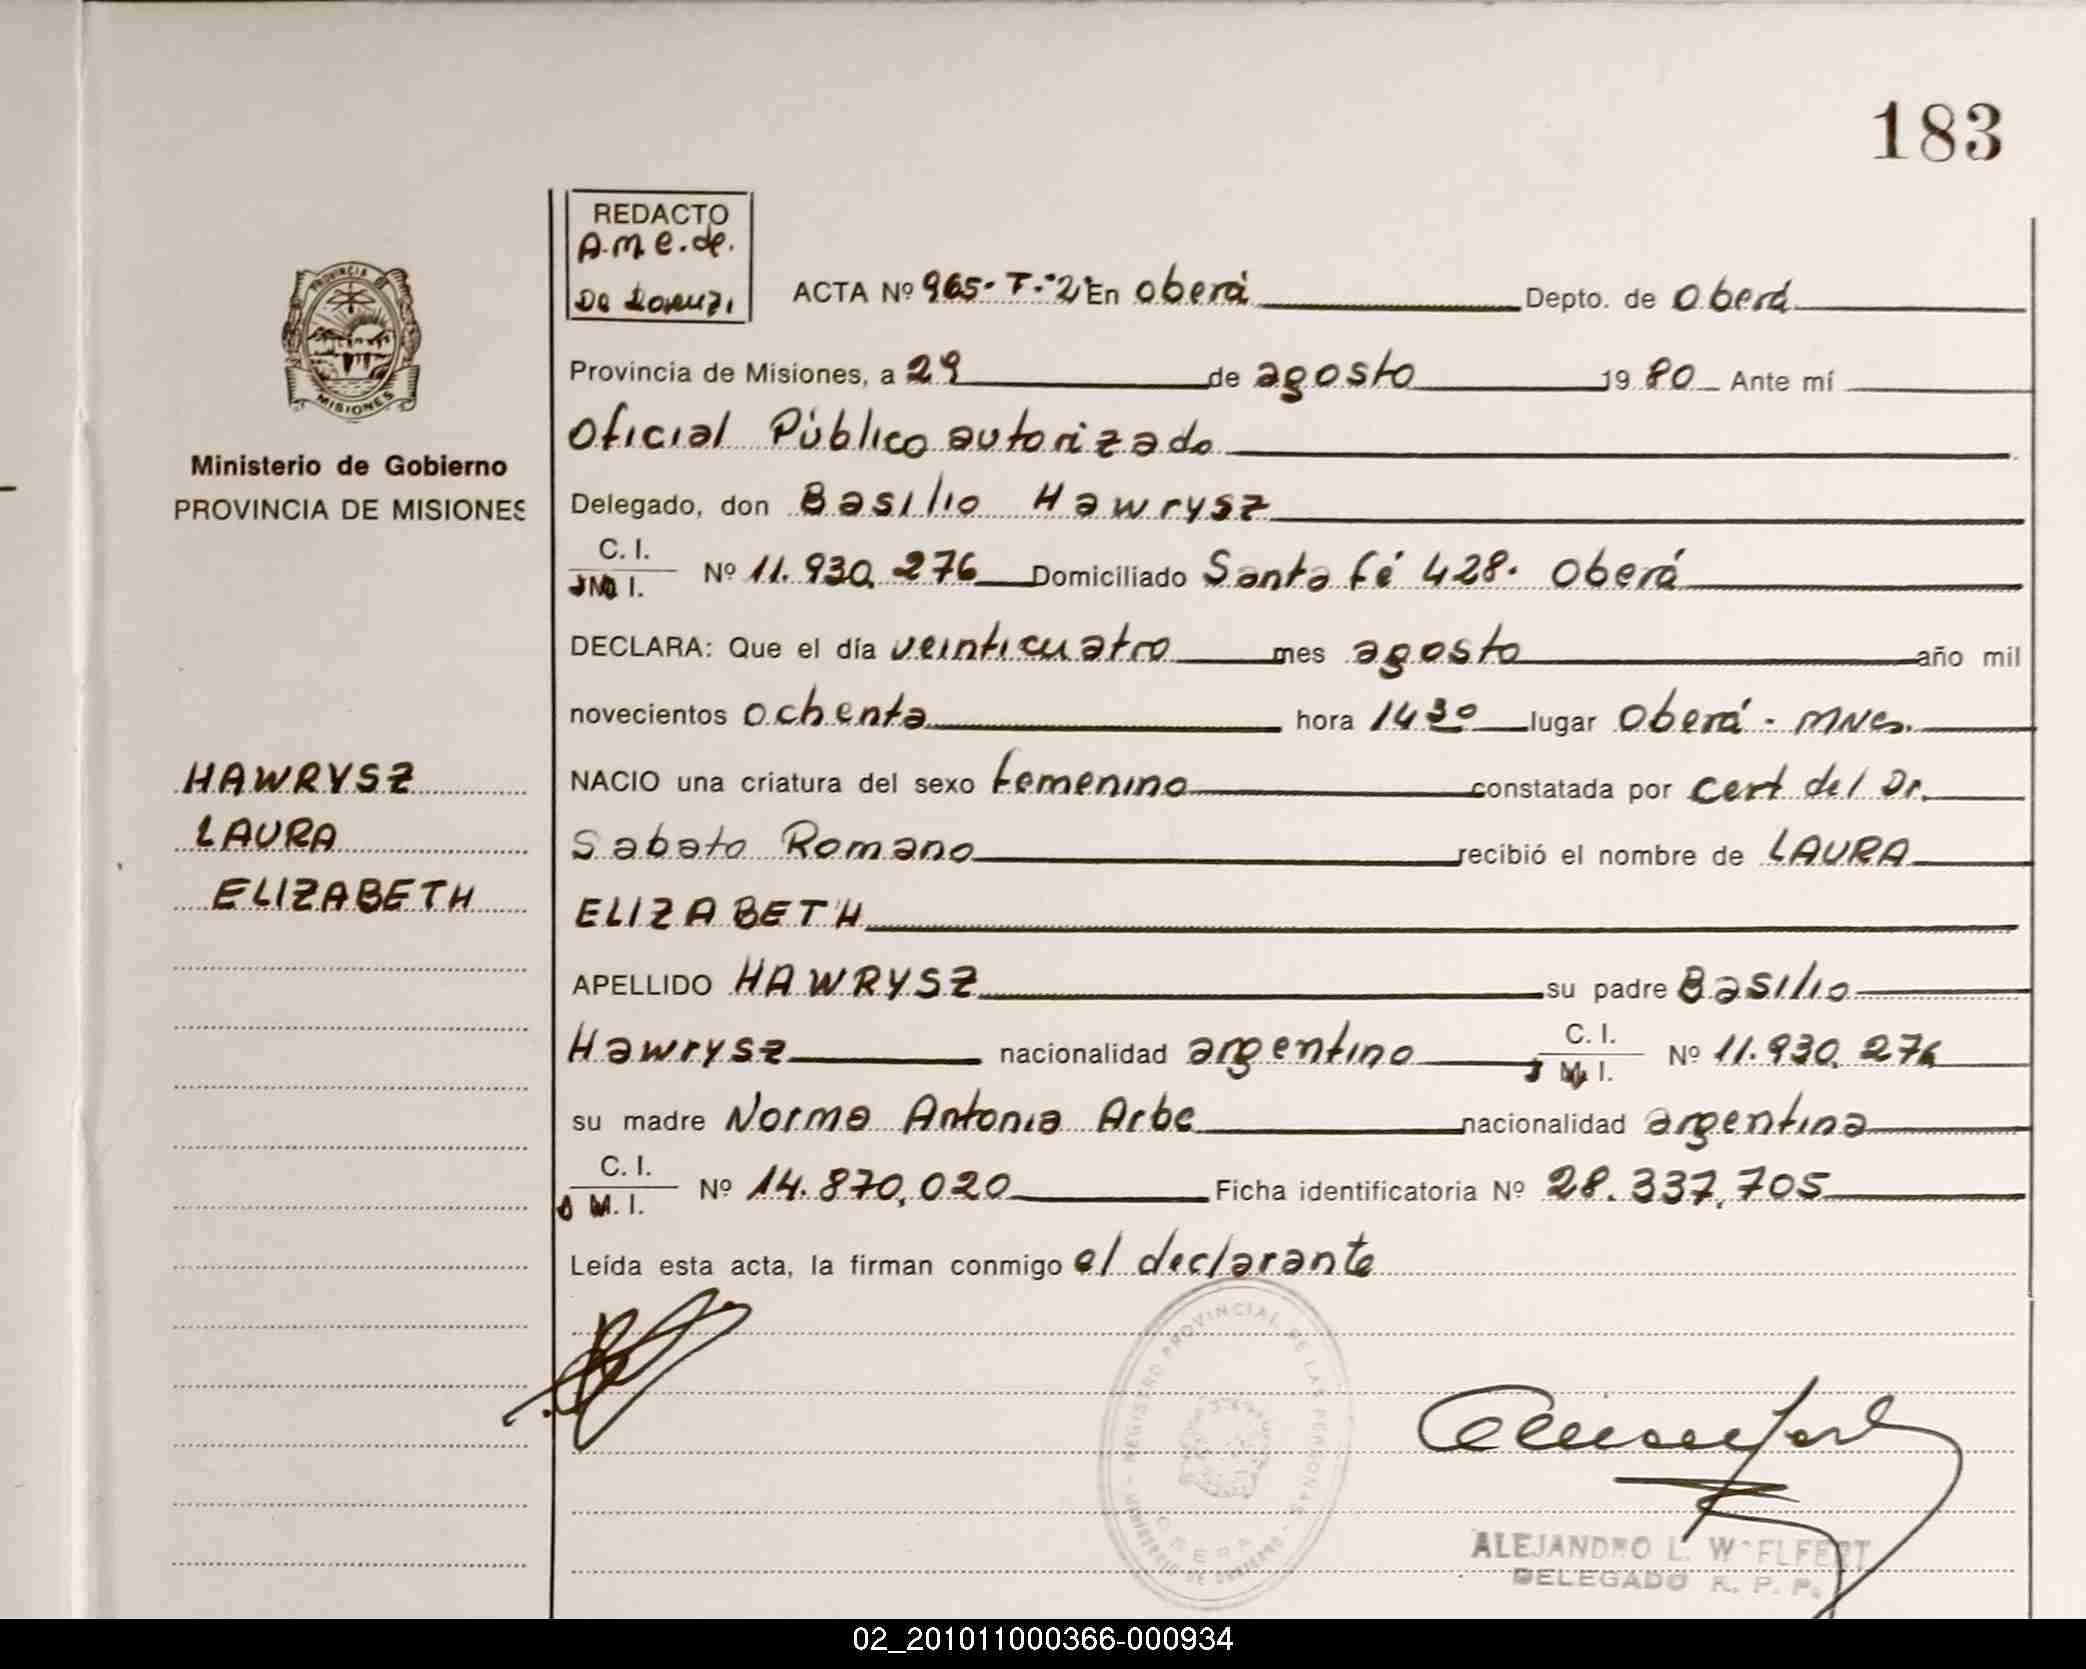 183
REDACTO
A.M.E. de.
De Lorenzi
PROVINCIA DE
MISIONES
Ministerio de Gobierno
PROVINCIA DE MISIONES
ACTA Nº 965-T-"2" En Oberá Depto. de Oberá
Provincia de Misiones, a 29 de agosto 1980 Ante mí
Oficial Público autorizado
Delegado, don Basilio Hawrysz
C. I.
M. I. Nº 11.930.276 Domiciliado Santa fé 428. Oberá
DECLARA: Que el día veinticuatro mes agosto año mil
novecientos ochenta hora 14 30 lugar Oberá - MNes.
NACIO una criatura del sexo femenino constatada por cert del Dr.
Sabato Romano recibió el nombre de LAURA
ELIZABETH
HAWRYSZ
LAURA
ELIZABETH
APELLIDO HAWRYSZ su padre Basilio
Hawrysz nacionalidad argentino C. I. M. I. Nº 11.930.276
su madre Norma Antonia Arbe nacionalidad argentina
C. I.
M. I. Nº 14.870,020 Ficha identificatoria Nº 28.337,705
Leída esta acta, la firman conmigo el declarante
REGISTRO PROVINCIAL DE LAS PERSONAS - MINISTERIO DE GOBIERNO -
OBERA
ALEJANDRO L. WELFERT
DELEGADO R. P. P.
02_201011000366-000934